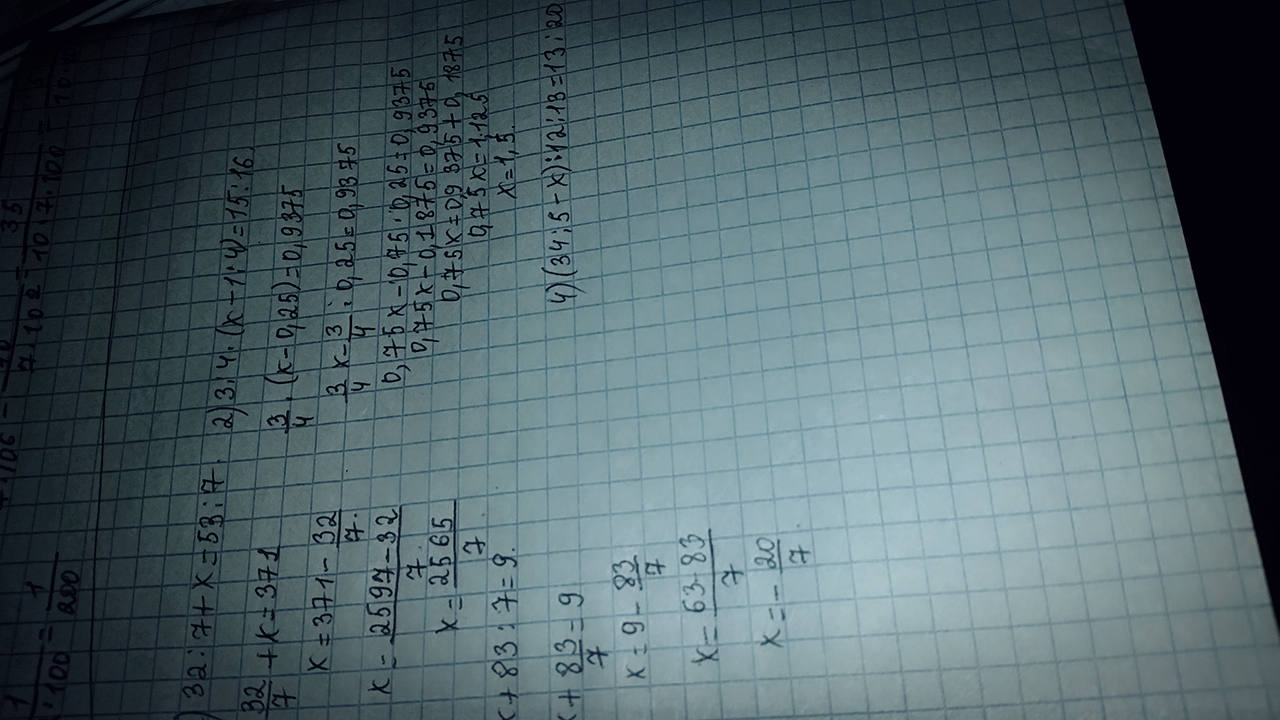 1/100 = 1/200
) 32 : 7 + x = 53 : 7.
32/7 + x = 371
x = 371 - 32/7.
x = 2597-32/7.
x = 2565/7
x + 83 : 7 = 9.
x + 83/7 = 9
x = 9 - 83/7
x = 63-83/7
x = - 20/7.
2) 3:4 · (x - 1:4) = 15:16.
3/4 · (x - 0,25) = 0,9375
3/4 x - 3/4 : 0,25 = 0,9375
0,75x - 0,75 · 0,25 = 0,9375
0,75x - 0,1875 = 0,9375
0,75x = 0,9375 + 0,1875
0,75x = 1,125
x = 1,5.
4) (34:5 - x) : 12:13 = 13:20